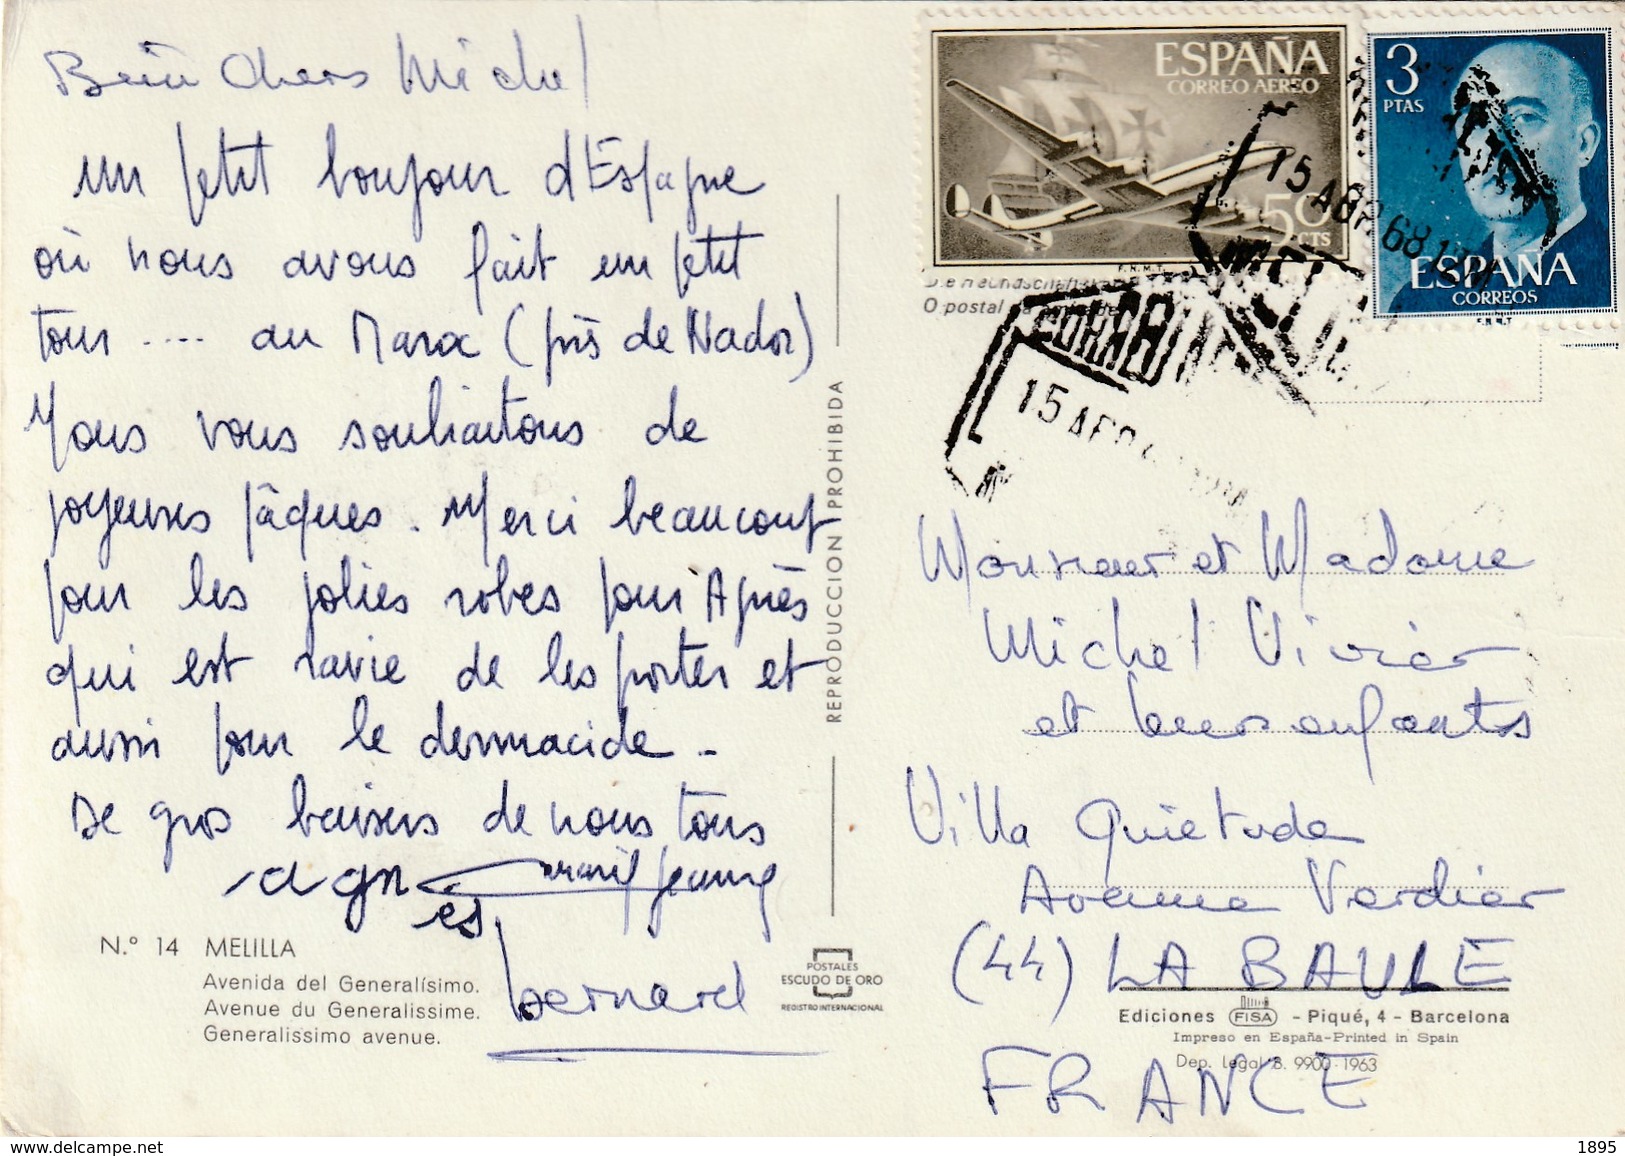 Bien Chers Michel
un petit bonjour d'Espagne
où nous avons fait un petit
tour .... au Maroc (près de Nador)
Nous vous souhaitons de
joyeuses pâques. Merci beaucoup
pour les jolies robes pour Agnès
qui est ravie de les porter et
aussi pour le dermacide -
De gros baisers de nous tous
agn
es
bernard
N.º 14 MELILLA
Avenida del Generalísimo.
Avenue du Generalissime.
Generalissimo avenue.
POSTALES
ESCUDO DE ORO
REGISTRO INTERNACIONAL
REPRODUCCION PROHIBIDA
ESPAÑA
CORREO AEREO
50 CTS
F.N.M.T.
3
PTAS
ESPAÑA
CORREOS
F.N.M.T
15 ABR 68
O postal
15 ABR
Monsieur et Madame
Michel Vivier
et leurs enfants
Villa Quietude
Avenue Verdier
(44) LA BAULE
Ediciones FISA - Piqué, 4 - Barcelona
Impreso en España-Printed in Spain
Dep. legal B. 9900-1963
FRANCE
www.delcampe.net
monty
1895